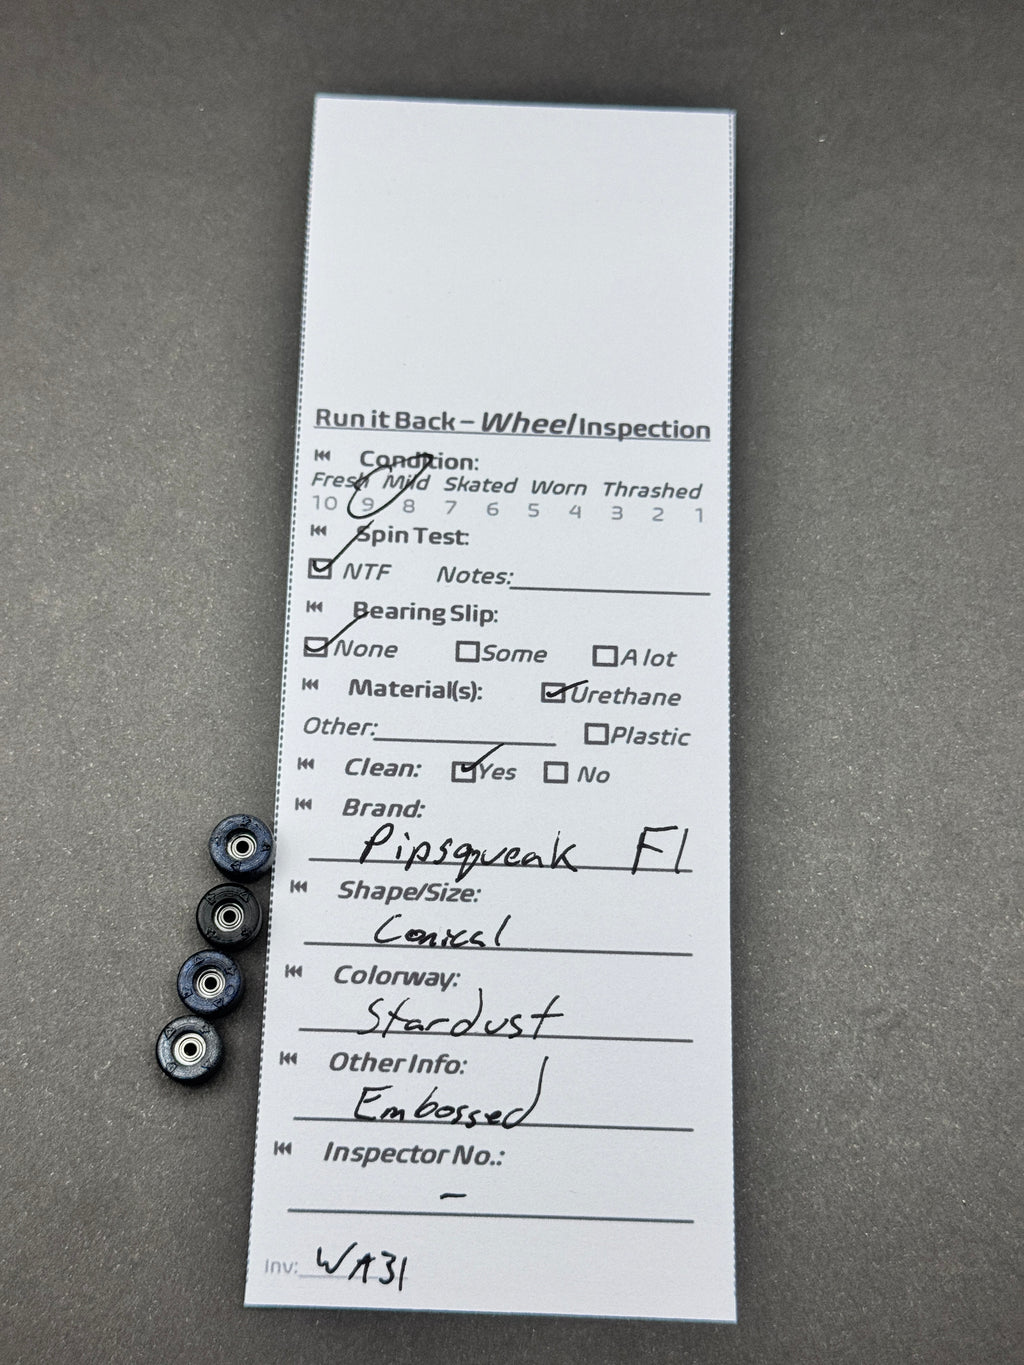 Run it Back - Wheel Inspection
Condition:
Fresh Mild Skated Worn Thrashed
10 9 8 7 6 5 4 3 2 1
Spin Test:
NTF Notes:
Bearing Slip:
None Some A lot
Material(s): Urethane
Other: Plastic
Clean: Yes No
Brand:
Pipsqueak F1
Shape/Size:
Conical
Colorway:
Stardust
Other Info:
Embossed
Inspector No.:
-
Inv: WA31